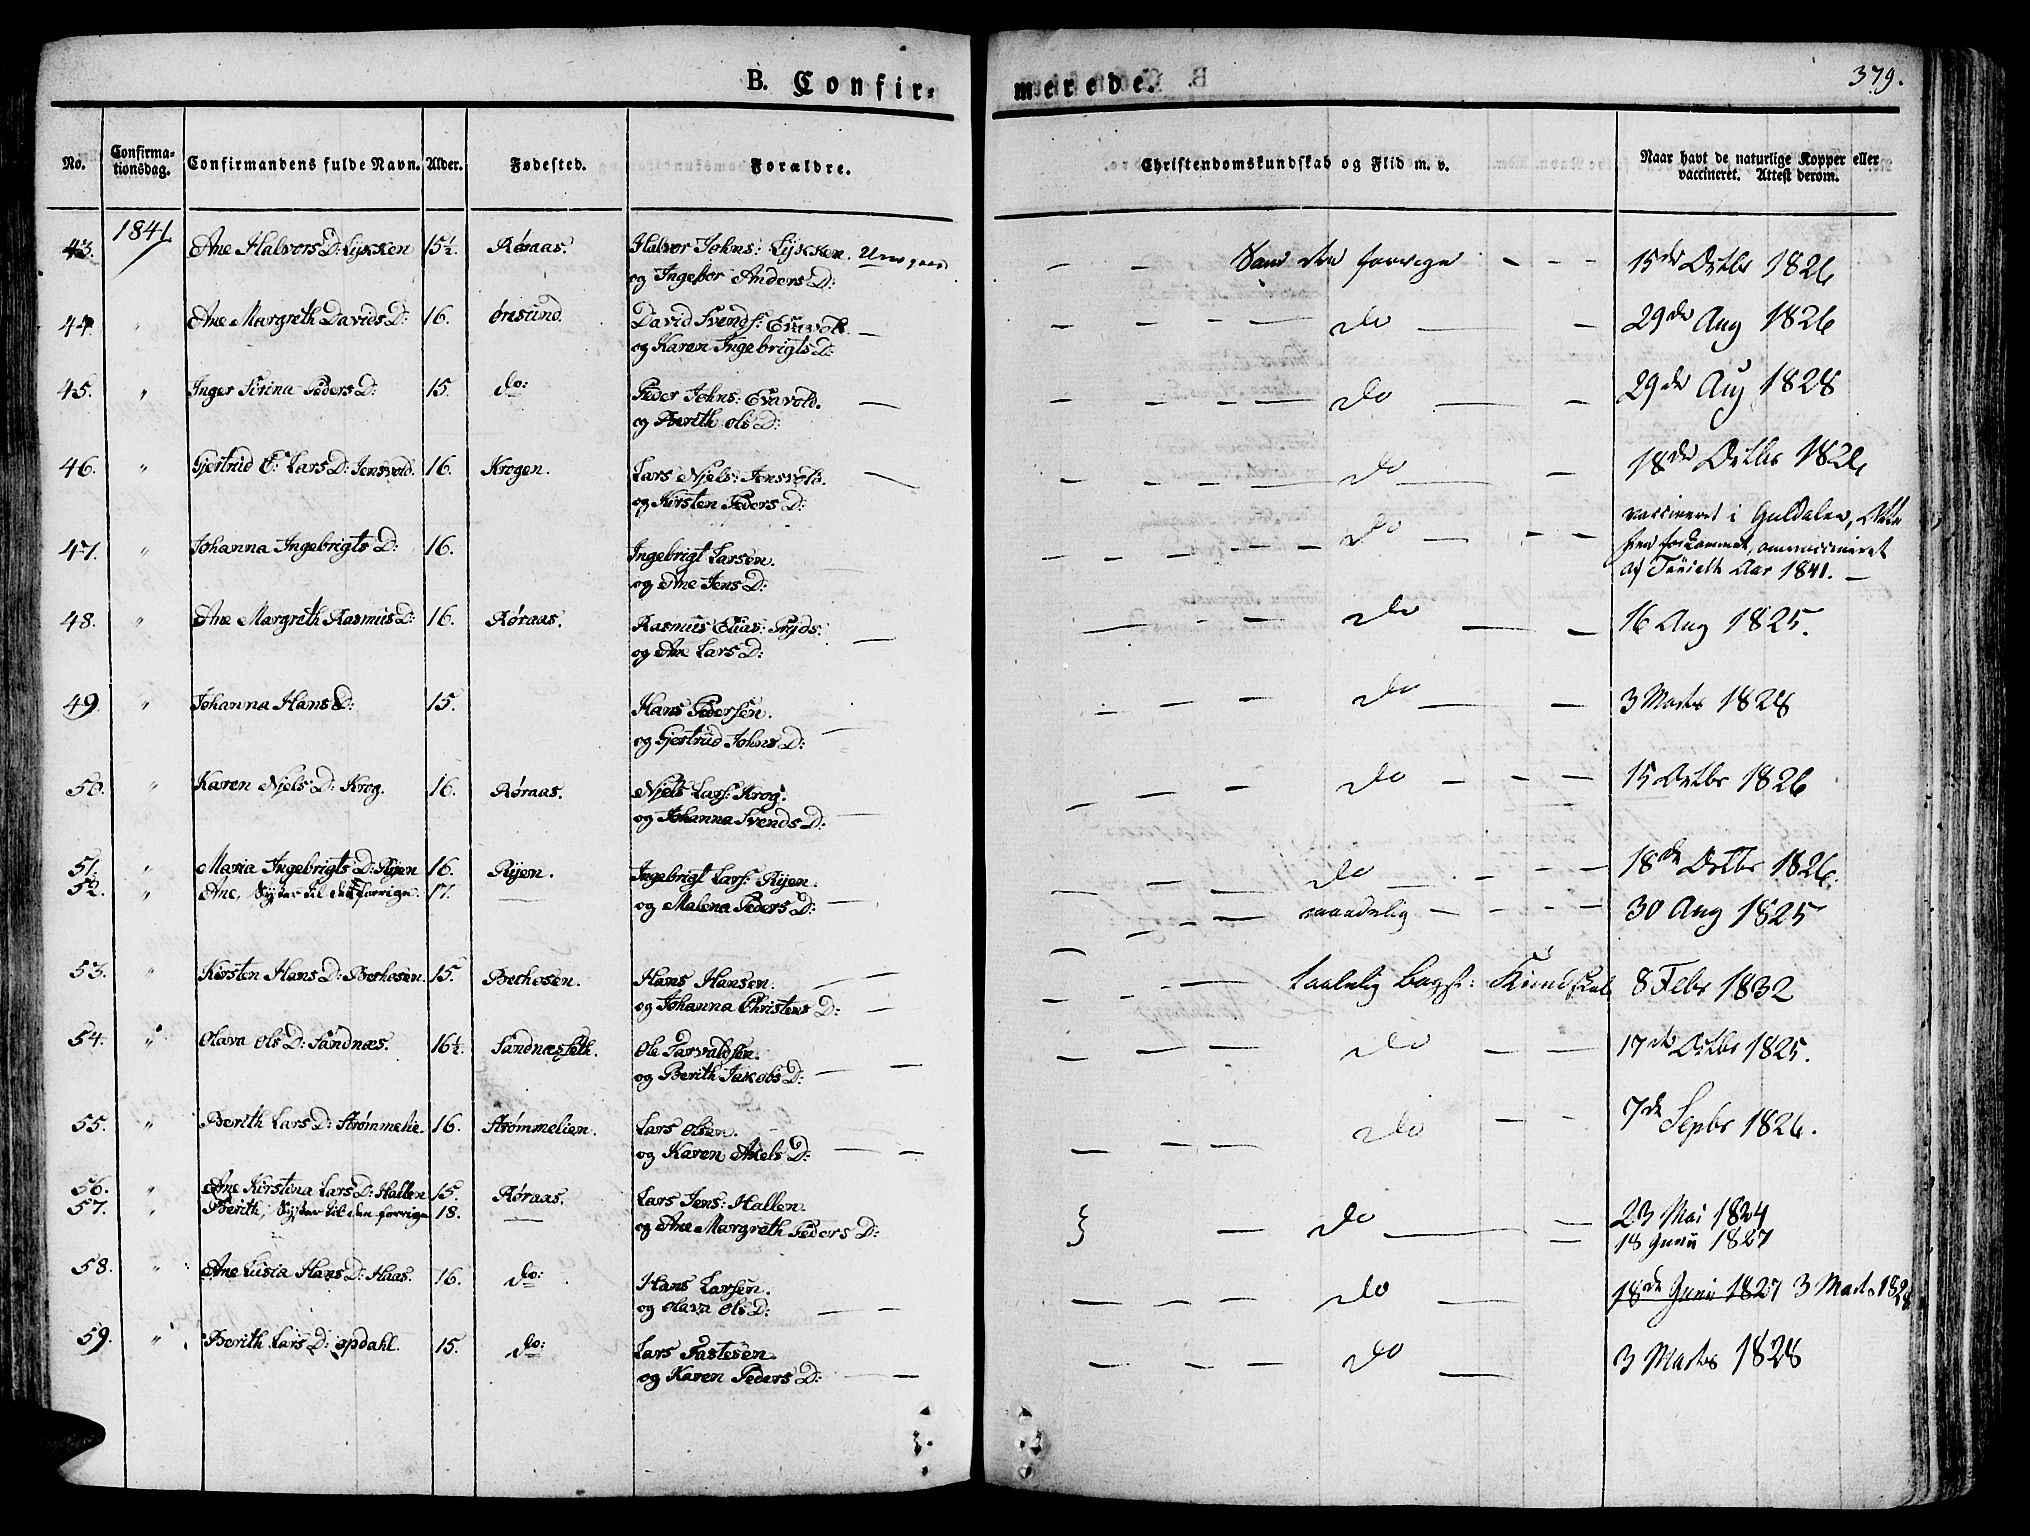 B. Confir-
merede.
379.
No. Confirmationsdag. Confirmandens fulde Navn. Alder. Fødested. Forældre. Christendomskundskab og Flid m. v. Naar havt de naturlige Kopper eller vaccineret. Attest derom.
43. 1841 Ane Halvors D: Lykken 15½. Røraas. Halvor Johns: Lykken. — — den forrige — — — 15de Octbr 1826
og Ingebor Anders D:
44. " Ane Margreth Davids D: 16. Ørisund. David Svends: Evavold. — — — — — do — — 29de Aug 1826
og Karen Ingebrigts D:
45. " Inger Sirina Peders D: 15. do: Peder Johns: Evavold. — — — — — do — — 29de Aug 1828
og Berith Ols D:
46. " Gjertrud E: Lars D: Jensvold. 16. Krogen. Lars Njels: Jensvold. — — — — — do — — 18de Octbr 1826
og Kirsten Peders D:
47. " Johanna Ingebrigts D: 16. Ingebrigt Larsen. — — — — — do — — — vaccineret i Guldalen,
og Ane Jens D:
forkommet, omvaccineret
af Aar 1841. —
48. " Ane Margreth Rasmus D: 16. Røraas. Rasmus Elias: Pryds. — — — do — — 16 Aug 1825.
og Ane Lars D:
49. " Johanna Hans D: 15. Hans Pedersen. — — — — do — — 3 Marts 1828
og Gjertrud Johns D:
50. " Karen Njels D: Krog. 16. Røraas. Njels Lars: Krog. — — — — do — — — 15 Octbr 1826
og Johanna Svends D:
51. " Maria Ingebrigts D: Ryen 16. Ryen. Ingebrigt Lars: Ryen. — — — — do — — — — 18de Octbr 1826.
52. " Ane, Syster til den forrige. 17. — og Malena Peders D: — — — — maadelig — — — — 30 Aug 1825
53. " Kirsten Hans D: Bethosen. 15. Bethosen. Hans Hansen. — — — — taalelig Bogst: Kundskab 8 Febr 1832
og Johanna Christens D: —
54. " Olava Ols D: Sandnæs. 16½. Sandnæsseth. Ole Tarvaldsen. — — — do — — 17de Octbr 1825.
og Berith Jakobs D: — —
55. " Berith Lars D: Strømmelie. 16. Strømmelien. Lars Olsen. — — — do — — 7de Sepbr 1826.
og Karen Axels D: — —
56. " Ane Kirstina Lars D: Hallen 15. Røraas. Lars Jens: Hallen 23 Mai 1824
57. " Berith, Syster til den forrige 18. — og Ane Margreth Peders D: } — do — — 18 Junii 1827
58. " Ane Lusia Hans D: Haas. 16. do: Hans Larsen. — — — — do — — 18de Juni 1827 3 Marts 1828
og Olava Ols D: — —
59. " Berith Lars D: Opdahl. 15. do: Lars Tastesen — — — — do — 3 Marts 1828
og Karen Peders D: — —